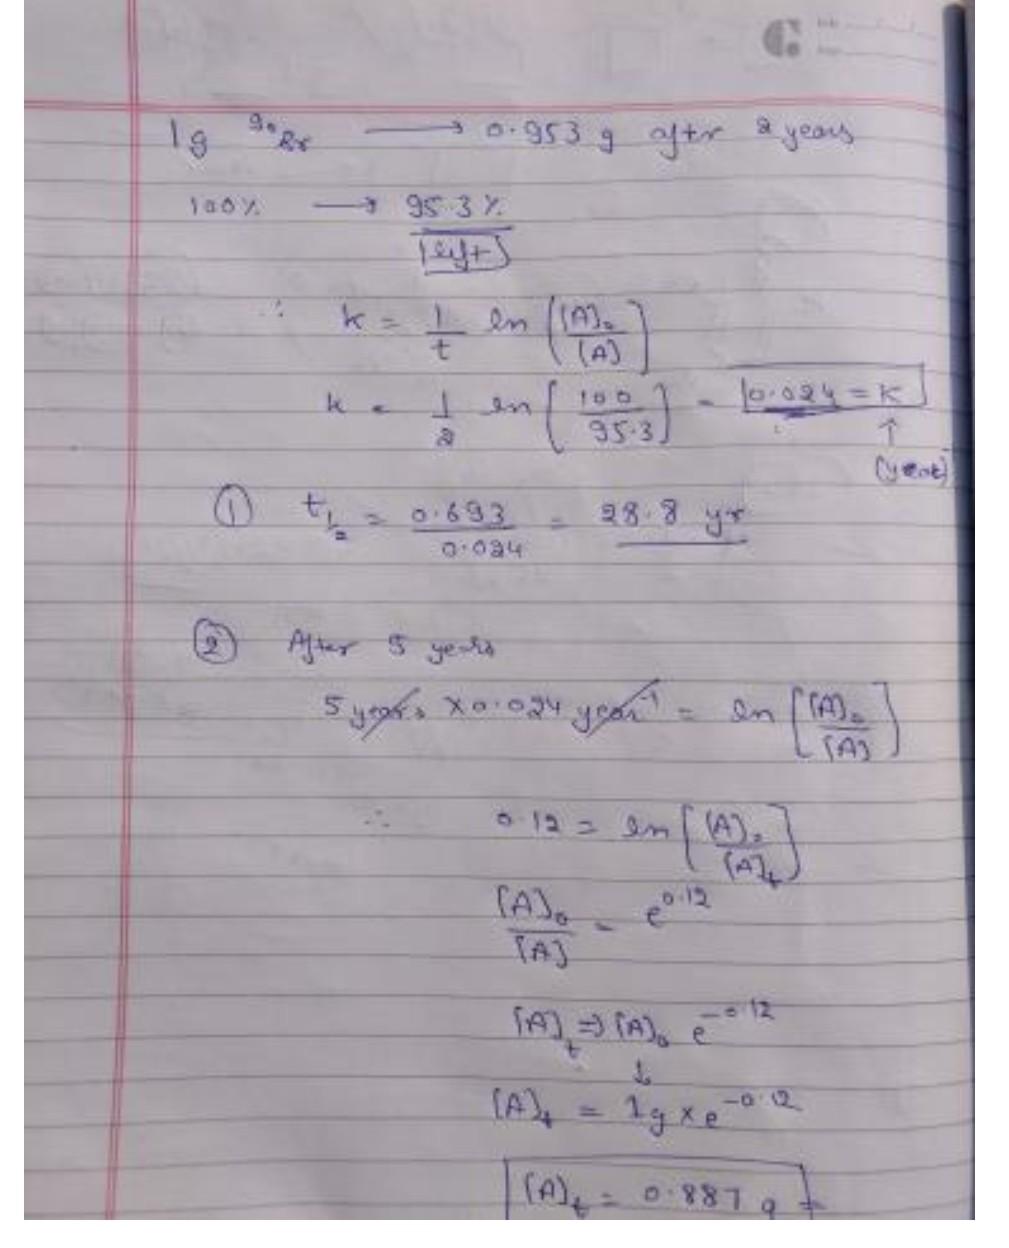 1g ⁹⁰Sr ⟶ 0.953 g after 2 years
100% ⟶ 95.3%
[left]
∴ k = 1/t ln [[A]₀/[A]]
k = 1/2 ln [100/95.3] = 0.024 = k
↑
① t₁/₂ = 0.693/0.024 = 28.8 yr
② After 5 years
5 years × 0.024 year⁻¹ = ln [[A]₀/[A]]
∴ 0.12 = ln [[A]₀/[A]t]
[A]₀/[A] = e^0.12
[A]t ⇒ [A]₀ e^-0.12
↓
[A]t = 1g × e^-0.12
[A]t = 0.887 g